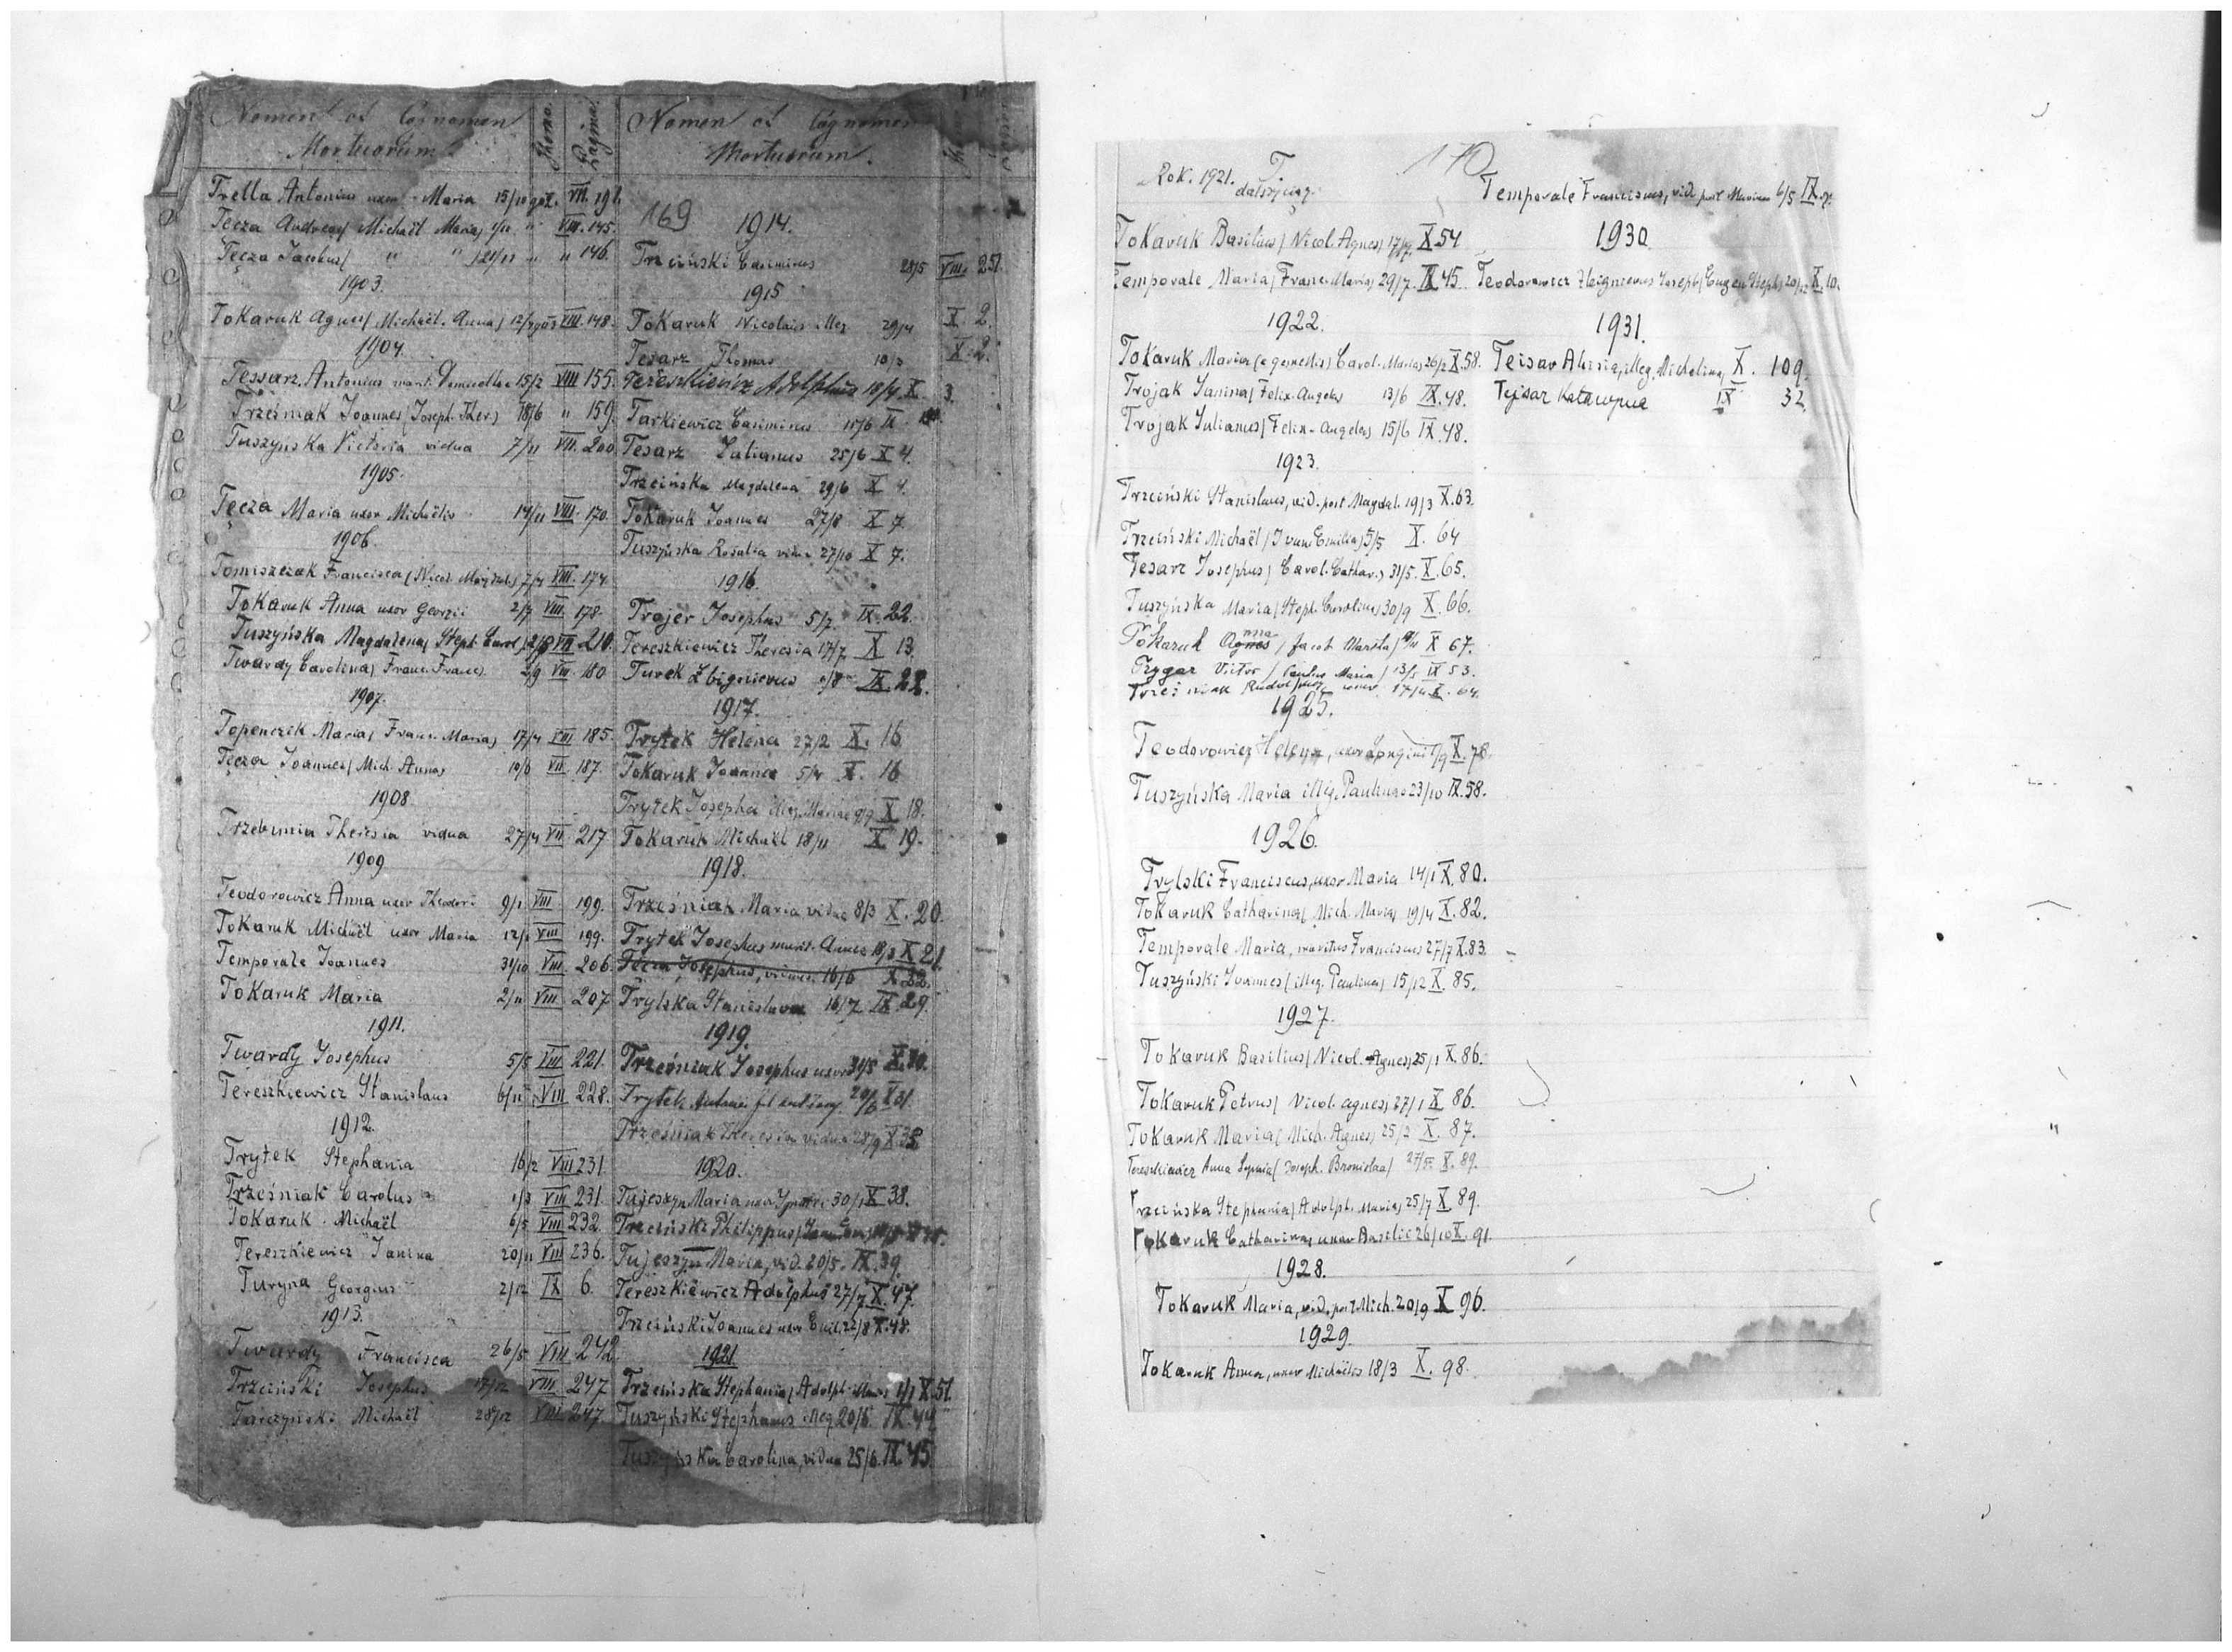 Nomen et Cognomen Mortuorum.
Thomo. Pagina.
Trella Antonius uxor Maria 15/10 902. VII. 191.
Tęcza Andreas/ Michaël Maria/ 1/11 " VIII. 145.
Tęcza Jacobus/ " " / 21/11 " " 146.
1903.
Tokaruk Agnes/ Michaël. Anna/ 12/7 903 VIII. 148.
1904.
Tessarz Antonius marit. 15/2 VIII 155.
Trześniak Joannes/ Joseph. Ther.) 18/6 " 159.
Tuszyńska Victoria vidua 7/11 VII. 200
1905.
Tęcza Maria uxor Michaëlis 14/11 VIII. 170.
1906.
Tomiszczak Francisca/ Nicol. 7/4 VIII. 174.
Tokaruk Anna uxor Georgii 2/7 VIII. 178.
Tuszyńska Magdalena/ Steph. Carol/ VII 210.
Twardy Carolina/ Franc. Franc/ 2/9 VIII. 180
1907.
Topenczik Maria/ Franc. Maria/ 17/4 VIII 185.
Tęcza Joannes/ Mich. Anna/ 10/6 VII 187.
1908
Trzebunia Theresia vidua 27/4 VII 217
1909
Teodorowicz Anna uxor Theodori 9/1 VIII 199.
Tokaruk Michaël uxor Maria 12/1 VIII 199.
Temporale Joannes 31/10 VIII 206.
Tokaruk Maria 2/11 VIII 207
1911.
Twardy Josephus 5/5 VIII 221.
Tereszkiewicz Stanislaus 6/11 VIII 228.
1912.
Trytek Stephania 16/2 VIII 231
Trześniak Carolus 1/3 VIII 231
Tokaruk Michaël 6/5 VIII 232.
Tereszkiewicz Janina 20/11 VIII 236.
Turyna Georgius 2/12 IX 6.
1913.
Twardy Francisca 26/5 VIII 242
Trzciński Josephus 17/12 VIII 247
Tarczyński Michaël 28/12 VIII 247.
Nomen et Cognomen
Mortuorum.
169 1914.
Trzciński Casimirus 28/5 VIII 251.
1915
Tokaruk Nicolaus illeg. 29/4 X 2.
Tesarz Thomas 10/3 X 2.
Tereszkiewicz Adolphus 18/4 X. 3.
Tarkiewicz Casimirus 11/6 IX
Tesarz Julianus 25/6 X 4.
Trzcińska Magdalena 29/6 X 4.
Tokaruk Joannes 27/8 X 7.
Tuszyńska Rosalia vidua 27/10 X 7.
1916.
Trojer Josephus 5/7 IX. 22.
Tereszkiewicz Theresia 17/7 X 13.
Turek Zbignievus 9/8 IX 22.
1917.
Trytek Helena 27/2 X. 16
Tokaruk Joannes 5/4 X. 16
Trytek Josepha illeg. Mariae 9/9 X 18.
Tokaruk Michaël 18/11 X 19.
1918.
Trześniak Maria vidua 8/3 X. 20.
Trytek Josephus marit. Annae 18/3 X 21.
Tęcza Josephus, viduus. 16/6 X 22.
Trylska Stanislava 16/7 IX 29.
1919.
Trześniak Josephus uxor 31/5 X. 30.
Trytek Antoni 20/6 X 31.
Trześniak Theresia vidua 28/9 X 35
1920.
Tujeszyn Maria uxor 30/1 X 38.
Trzciński Philippus/
Tujeszyn Maria, vid. 20/5. IX. 39.
Tereszkiewicz Adolphus 27/7 X. 47.
Trzciński Joannes uxor Emil. 22/8 X. 48.
1921.
Trzcińska Stephania/ Adolph. Maria 1/1 X. 51.
Tuszyński Stephanus illeg 20/6. IX. 44
Tuszyńska Carolina, vidua 25/6. IX. 45.
170
Rok. 1921. T.
dalszy ciąg.
Tokaruk Basilius/ Nicol. Agnes/ 17/7 X 54
Temporale Maria/ Franc. Maria/ 29/7. IX 45.
1922.
Tokaruk Maria (e gemellis) Carol. Maria 26/2 X. 58.
Trojak Janina/ Felix. Angela/ 13/6 IX. 48.
Trojak Julianus/ Felix. Angela/ 15/6 IX. 48.
1923.
Trzciński Stanislaus, vid. post Magdal. 19/3 X. 63.
Trzciński Michaël/ Ivan. Emilia/ 5/5 X. 64
Tesarz Josephus/ Carol. Cathar./ 31/5. X. 65.
Tuszyńska Maria/ Steph. Carolina/ 30/9 X. 66.
Tokaruk Agnes / Jacob Marta/ X 67.
Trygar Victor / Paulus Maria / 13/5 IX 53.
Trześniak 17/4 X. 64.
1925.
Teodorowicz Helena, uxor Longini X. 78.
Tuszyńska Maria illeg. Paulinae 23/10 IX. 58.
1926.
Trylski Franciscus, uxor Maria 14/1 X. 80.
Tokaruk Catharina/ Mich. Maria/ 19/4 X. 82.
Temporale Maria, maritus Franciscus 27/7 X. 83.
Tuszyński Joannes/ illeg. Paulina/ 15/12 X. 85.
1927.
Tokaruk Basilius/ Nicol. Agnes/ 25/1 X. 86.
Tokaruk Petrus/ Nicol. Agnes/ 27/1 X 86.
Tokaruk Maria/ Mich. Agnes/ 25/2 X. 87.
Tereszkiewicz Anna / Joseph. Bronislaa/ 27/5. X. 89.
Trzcińska Stephania/ Adolph. Maria/ 25/7 X 89.
Tokaruk Catharina, uxor Basilii 26/10 X. 91
1928.
Tokaruk Maria, vid. post Mich. 20/9 X 96.
1929.
Tokaruk Anna, uxor Michaëlis 18/3 X. 98.
Temporale Franciscus, vid. post Mariam 6/5 IX. 7.
1930.
Teodorowicz Zbignievus Joseph/ Eugen Steph/ 20/12 X. 10.
1931.
Teisar Aloisia, illeg. Michalina, X. 109.
Tejsar Katarzyna IX 32.